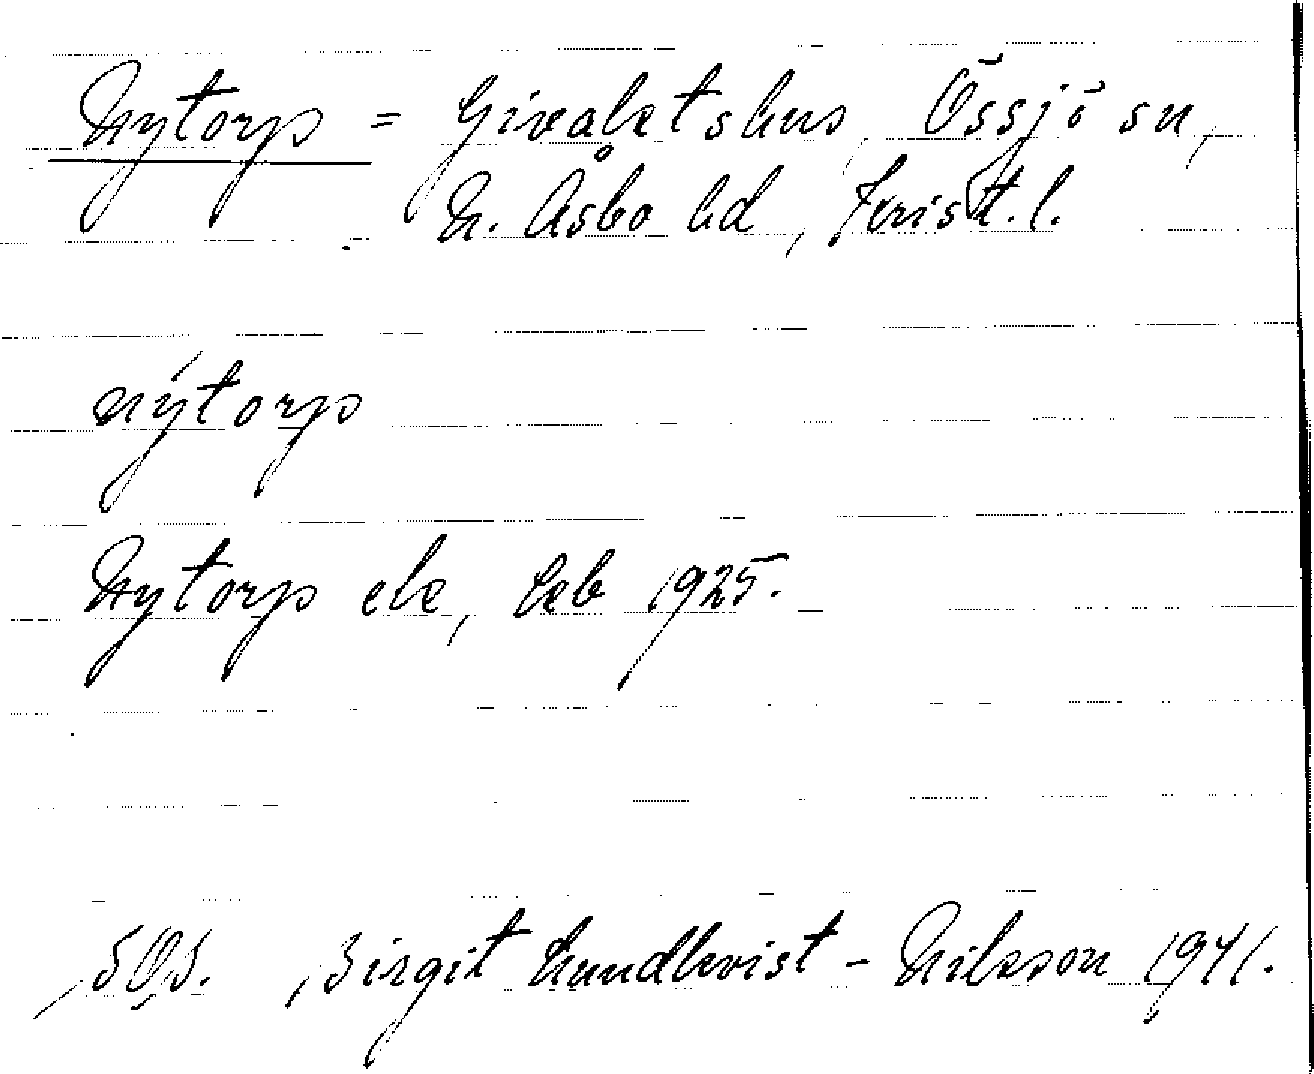 Nytorp = Givaktshus, Össjö sn,
N. Åsbo hd, Krist. l.
nýtorp
Nytorp ek, Jeb 1925.
SOS. Birgit Lundkvist - Nilsson 1941.